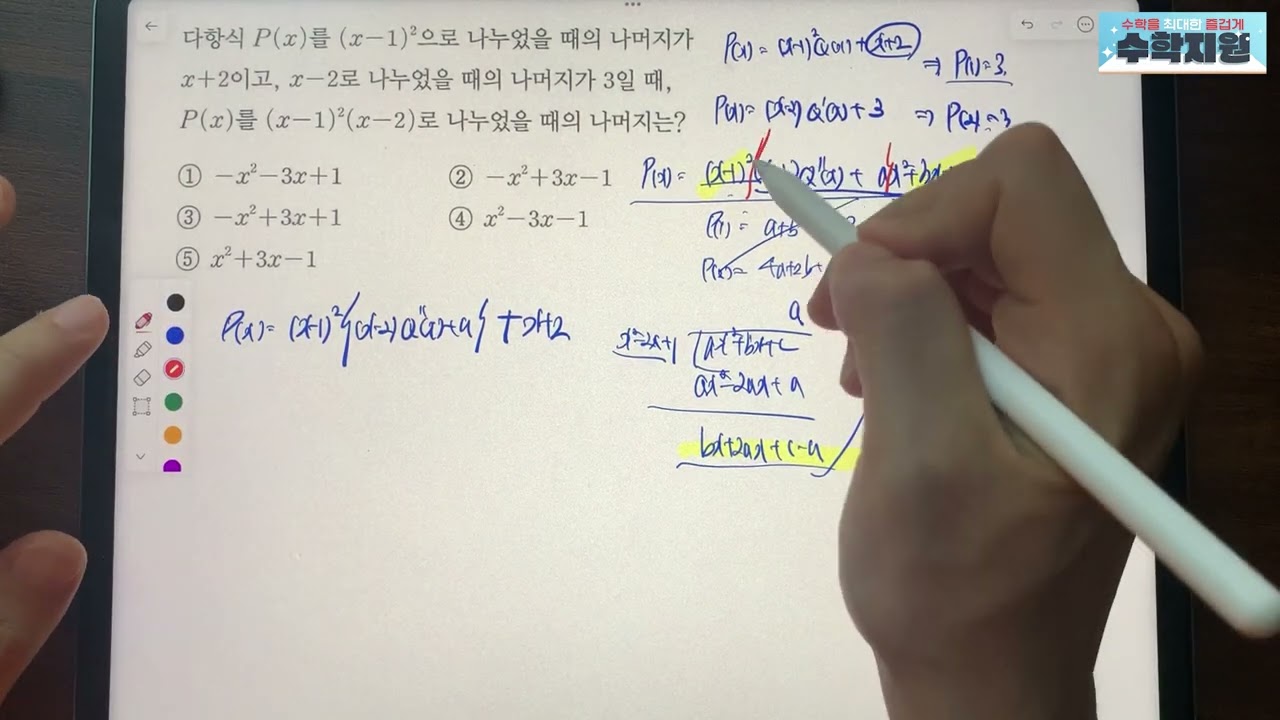 수학을 최대한 즐겁게
수학지원
다항식 P(x)를 (x−1)²으로 나누었을 때의 나머지가
x+2이고, x−2로 나누었을 때의 나머지가 3일 때,
P(x)를 (x−1)²(x−2)로 나누었을 때의 나머지는?
① −x²−3x+1
② −x²+3x−1
③ −x²+3x+1
④ x²−3x−1
⑤ x²+3x−1
P(x) = (x-1)²Q(x) + x+2 ⇒ P(1)=3
P(x) = (x-2)Q'(x) + 3 ⇒ P(2)=3
P(x) = (x-1)² Q''(x) + ax²+bx
P(1) = a+b
P(2) = 4a+2b+
P(x) = (x-1)²{(x-2)Q''(x)+a} + x+2
a
x²-2x+1 ax²+bx+c
ax²-2ax+a
bx+2ax+c-a